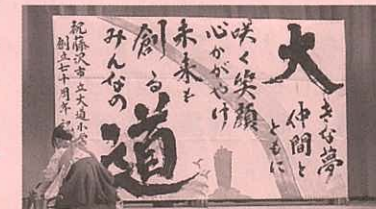 大きな夢
仲間と
ともに
咲く笑顔
心かがやけ
未来を
創る
みんなの
道
祝藤沢市立大道小
創立七十周年